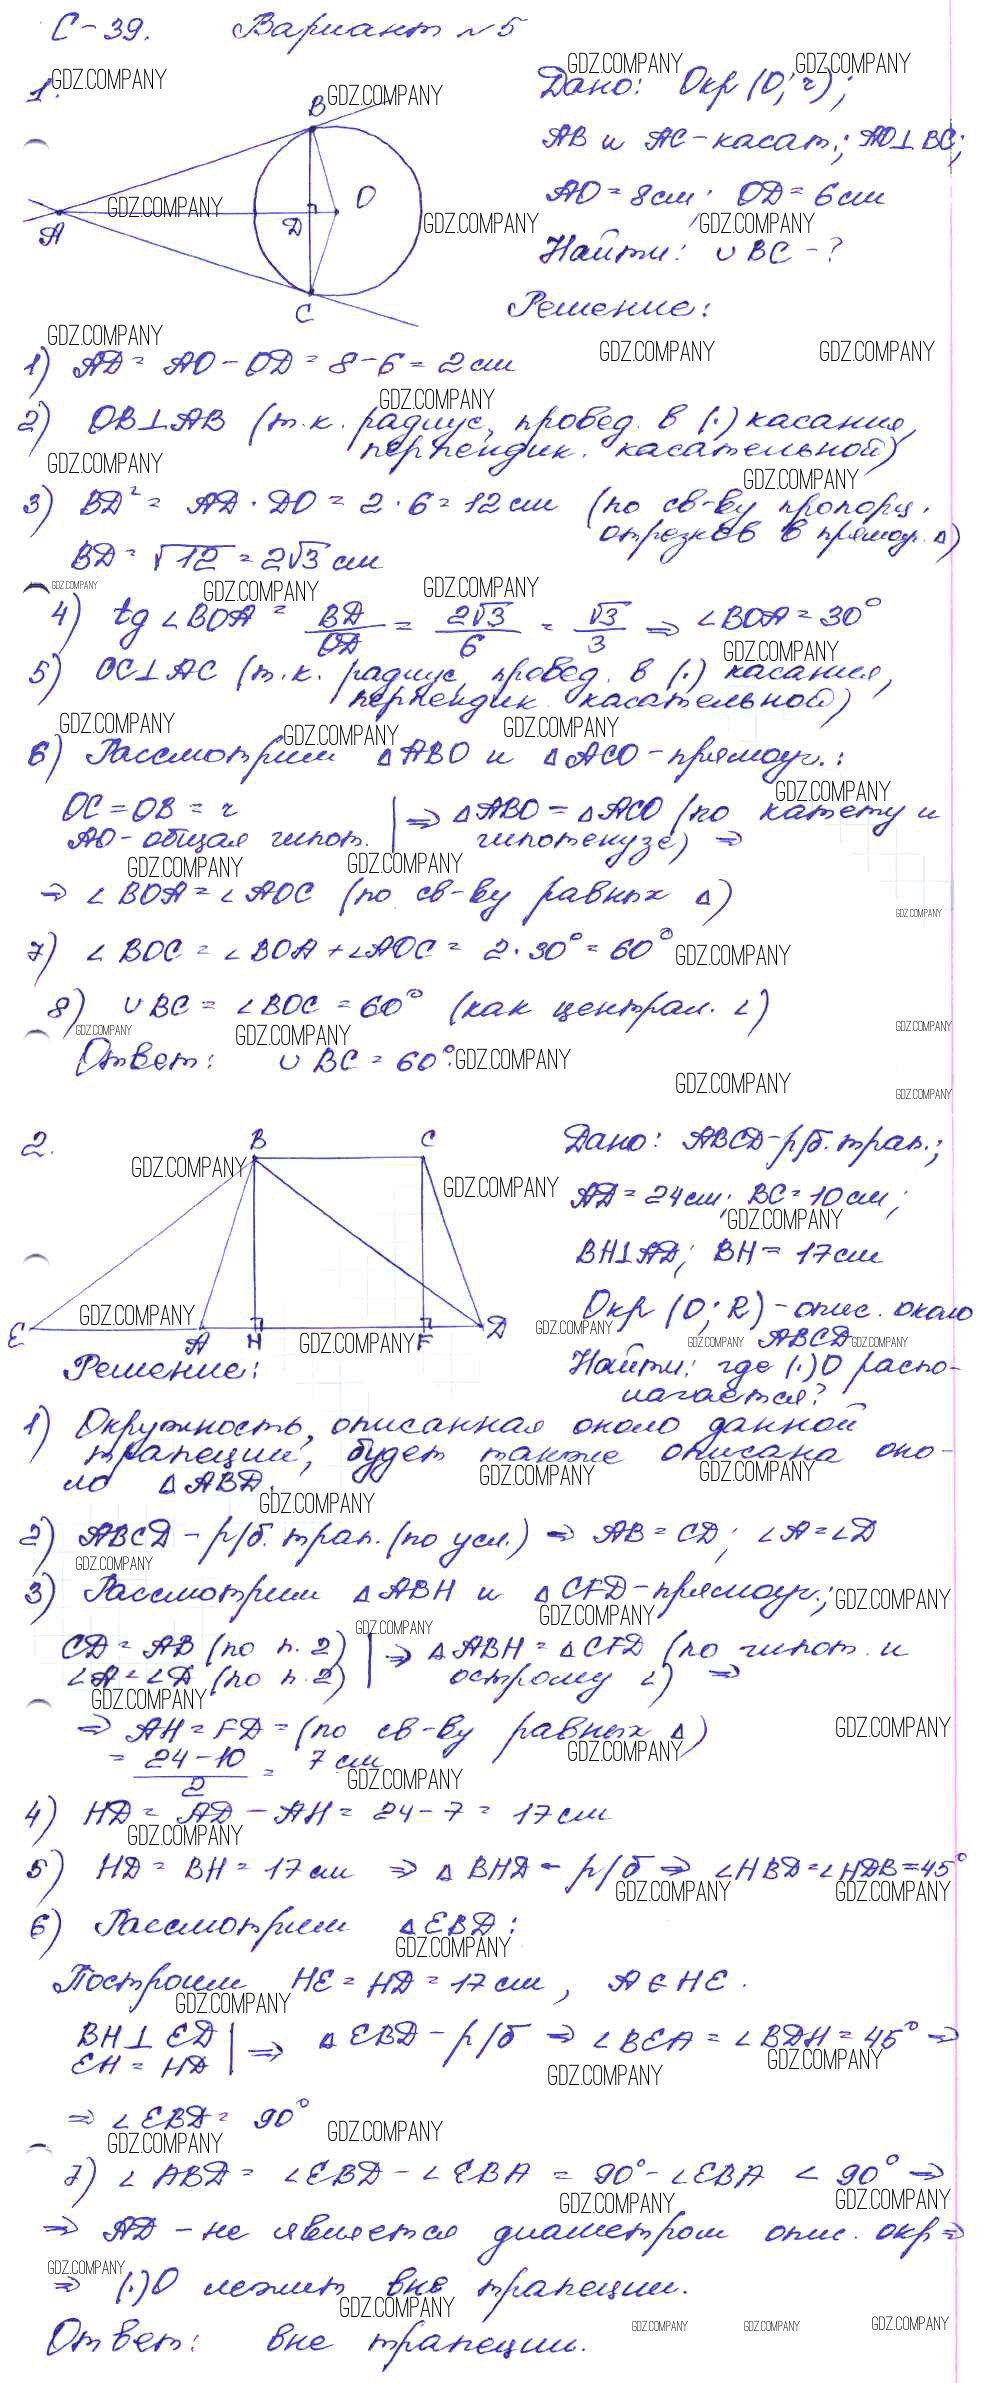 С-39. Вариант №5
1.
Дано: Окр (O; r);
AB и AC - касат.; AO⊥BC;
AO = 8см; OD = 6см
Найти: ∪BC - ?
B
O
D
A
C
Решение:
1) AD = AO - OD = 8 - 6 = 2 см
2) OB⊥AB (т.к. радиус, провед. в (.) касания,
перпендик. касательной)
3) BD² = AD · DO = 2 · 6 = 12 см (по св-ву пропорц.
отрезков в прямоуг. Δ)
BD = √12 = 2√3 см
4) tg ∠BOA = BD/OD = 2√3/6 = √3/3 ⇒ ∠BOA = 30°
5) OC⊥AC (т.к. радиус, провед. в (.) касания,
перпендик. касательной)
6) Рассмотрим ΔABO и ΔACO - прямоуг.:
OC = OB = r | ⇒ ΔABO = ΔACO (по катету и
AO - общая гипот. | гипотенузе) ⇒
⇒ ∠BOA = ∠AOC (по св-ву равных Δ)
7) ∠BOC = ∠BOA + ∠AOC = 2 · 30° = 60°
8) ∪BC = ∠BOC = 60° (как централ. ∠)
Ответ: ∪BC = 60°.
2.
B C
E A H F D
Дано: ABCD - р/б. трап.;
AD = 24см; BC = 10см;
BH⊥AD; BH = 17см
Окр (O; R) - опис. около
ABCD
Найти: где (.)O распо-
лагается?
Решение:
1) Окружность, описанная около данной
трапеции, будет также описана око-
ло ΔABD.
2) ABCD - р/б. трап. (по усл.) ⇒ AB = CD; ∠A = ∠D
3) Рассмотрим ΔABH и ΔCFD - прямоуг.;
CD = AB (по п. 2) | ⇒ ΔABH = ΔCFD (по гипот. и
∠A = ∠D (по п. 2) | острому ∠) ⇒
⇒ AH = FD = (по св-ву равных Δ)
= 24 - 10/2 = 7 см
4) HD = AD - AH = 24 - 7 = 17 см
5) HD = BH = 17 см ⇒ ΔBHD - р/б ⇒ ∠HBD = ∠HDB = 45°
6) Рассмотрим ΔEBD:
Построим HE = HD = 17 см, A ∈ HE.
BH⊥ED | ⇒ ΔEBD - р/б ⇒ ∠BEA = ∠BDH = 45° ⇒
EH = HD |
⇒ ∠EBD = 90°
7) ∠ABD = ∠EBD - ∠EBA = 90° - ∠EBA < 90° ⇒
⇒ AD - не является диаметром опис. окр ⇒
⇒ (.)O лежит вне трапеции.
Ответ: вне трапеции.
GDZ.COMPANY